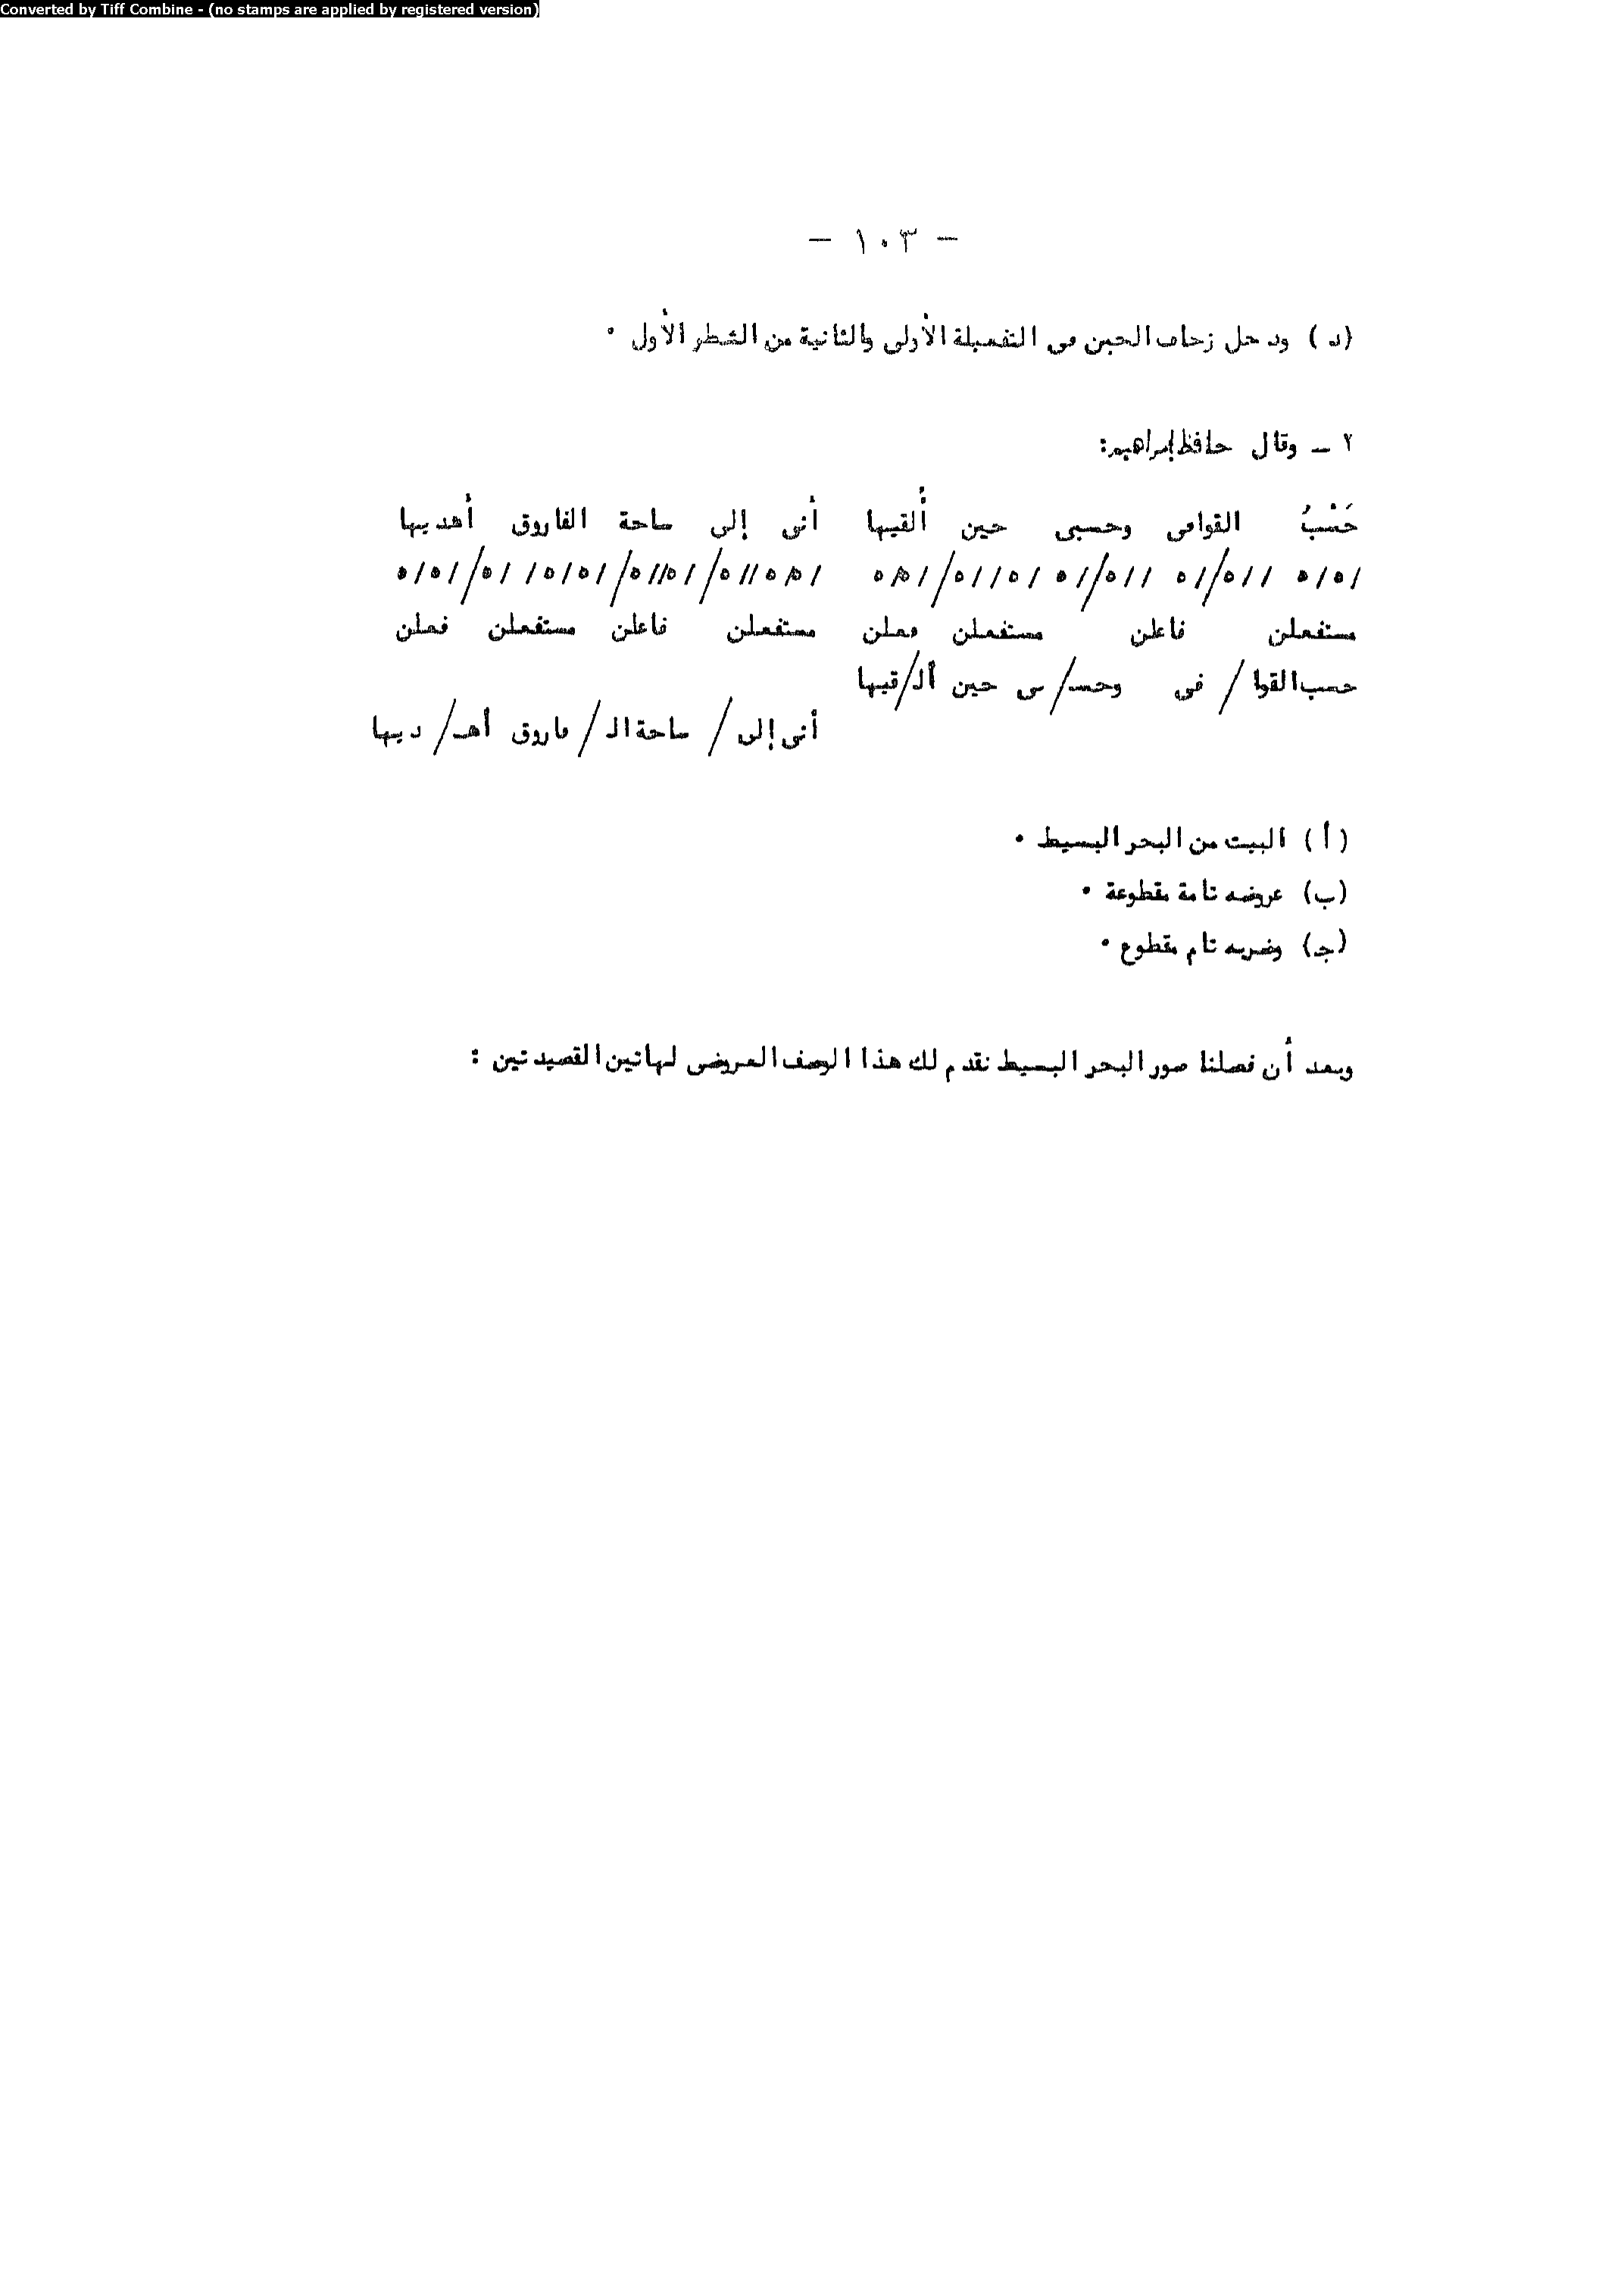 Converted by Tiff Combine - (no stamps are applied by registered version)
— ١٠٣ —
(د) ودخل زحاف الخبن فى التفعيلة الأولى والثانية من الشطر الأول .
٢ – وقال حافظ إبراهيم:
حَسْبُ القوافى وحسبى حين أُلقيها أنى إلى ساحة الفاروق أهديها
/٥/٥ //٥/ /٥ //٥/ /٥ /٥//٥/ /٥/٥ /٥/٥//٥/ /٥//٥/ /٥/٥/ /٥/ /٥/٥
مستفعلن فاعلن مستفعلن فعلن مستفعلن فاعلن مستفعلن فعلن
حسب القوا / فى وحسـ/ بى حين ألـ/قيها
أنى إلى / ساحة الـ / فاروق أهـ/ ديها
(أ) البيت من البحر البسيط .
(ب) عروضه تامة مقطوعة .
(جـ) وضربه تام مقطوع .
وبعد أن فصلنا صور البحر البسيط نقدم لك هذا الوصف العروضى لهاتين القصيدتين :